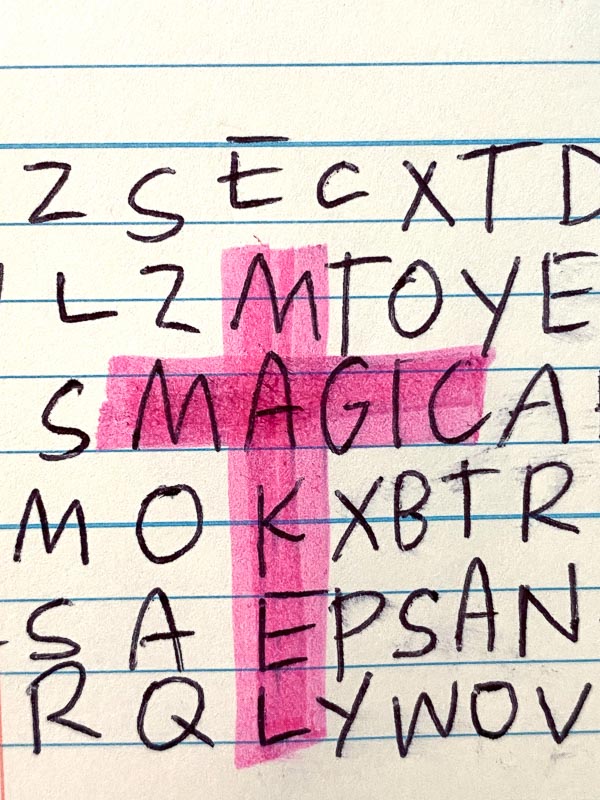 Z S E C X T D
L Z M T O Y E
S M A G I C A
M O K X B T R
S A E P S A N
R Q L Y W O V